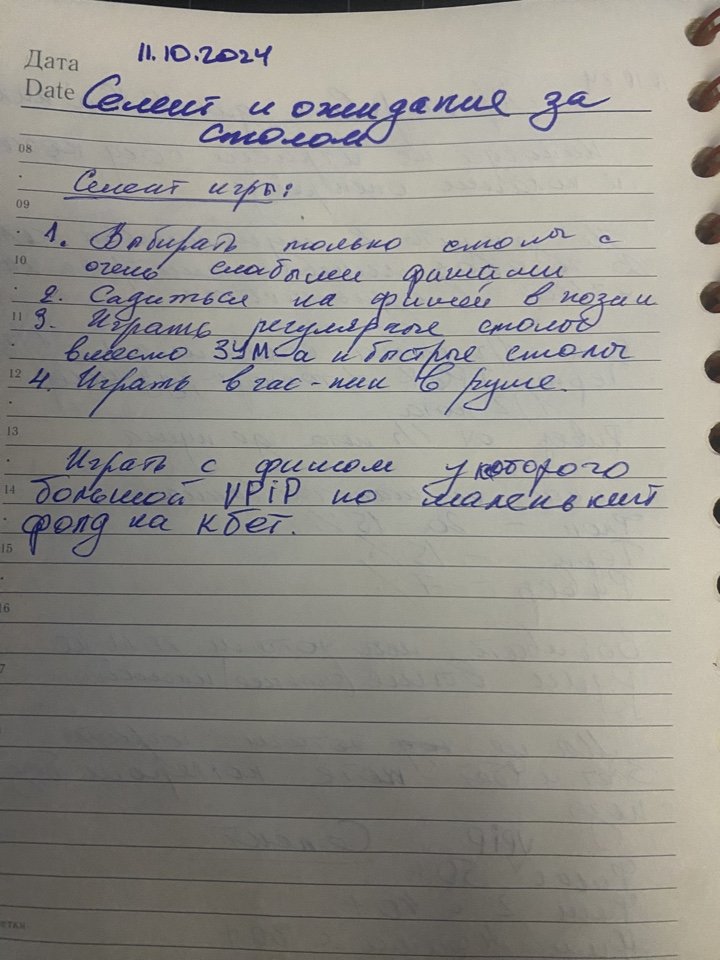 Дата
11.10.2024
Date
Селект и ожидание за
столом
08
Селект игры:
09
1. Выбирать только столы с
10
очень слабыми фишами
2. Садиться на фишей в позии
11
3. Играть регулярные столы
вместо ЗУМ-а и быстрые столы
12
4. Играть в час-пик в руме.
13
Играть с фишом у которого
14
большой VPiP но маленький
фолд на кбет.
15
16